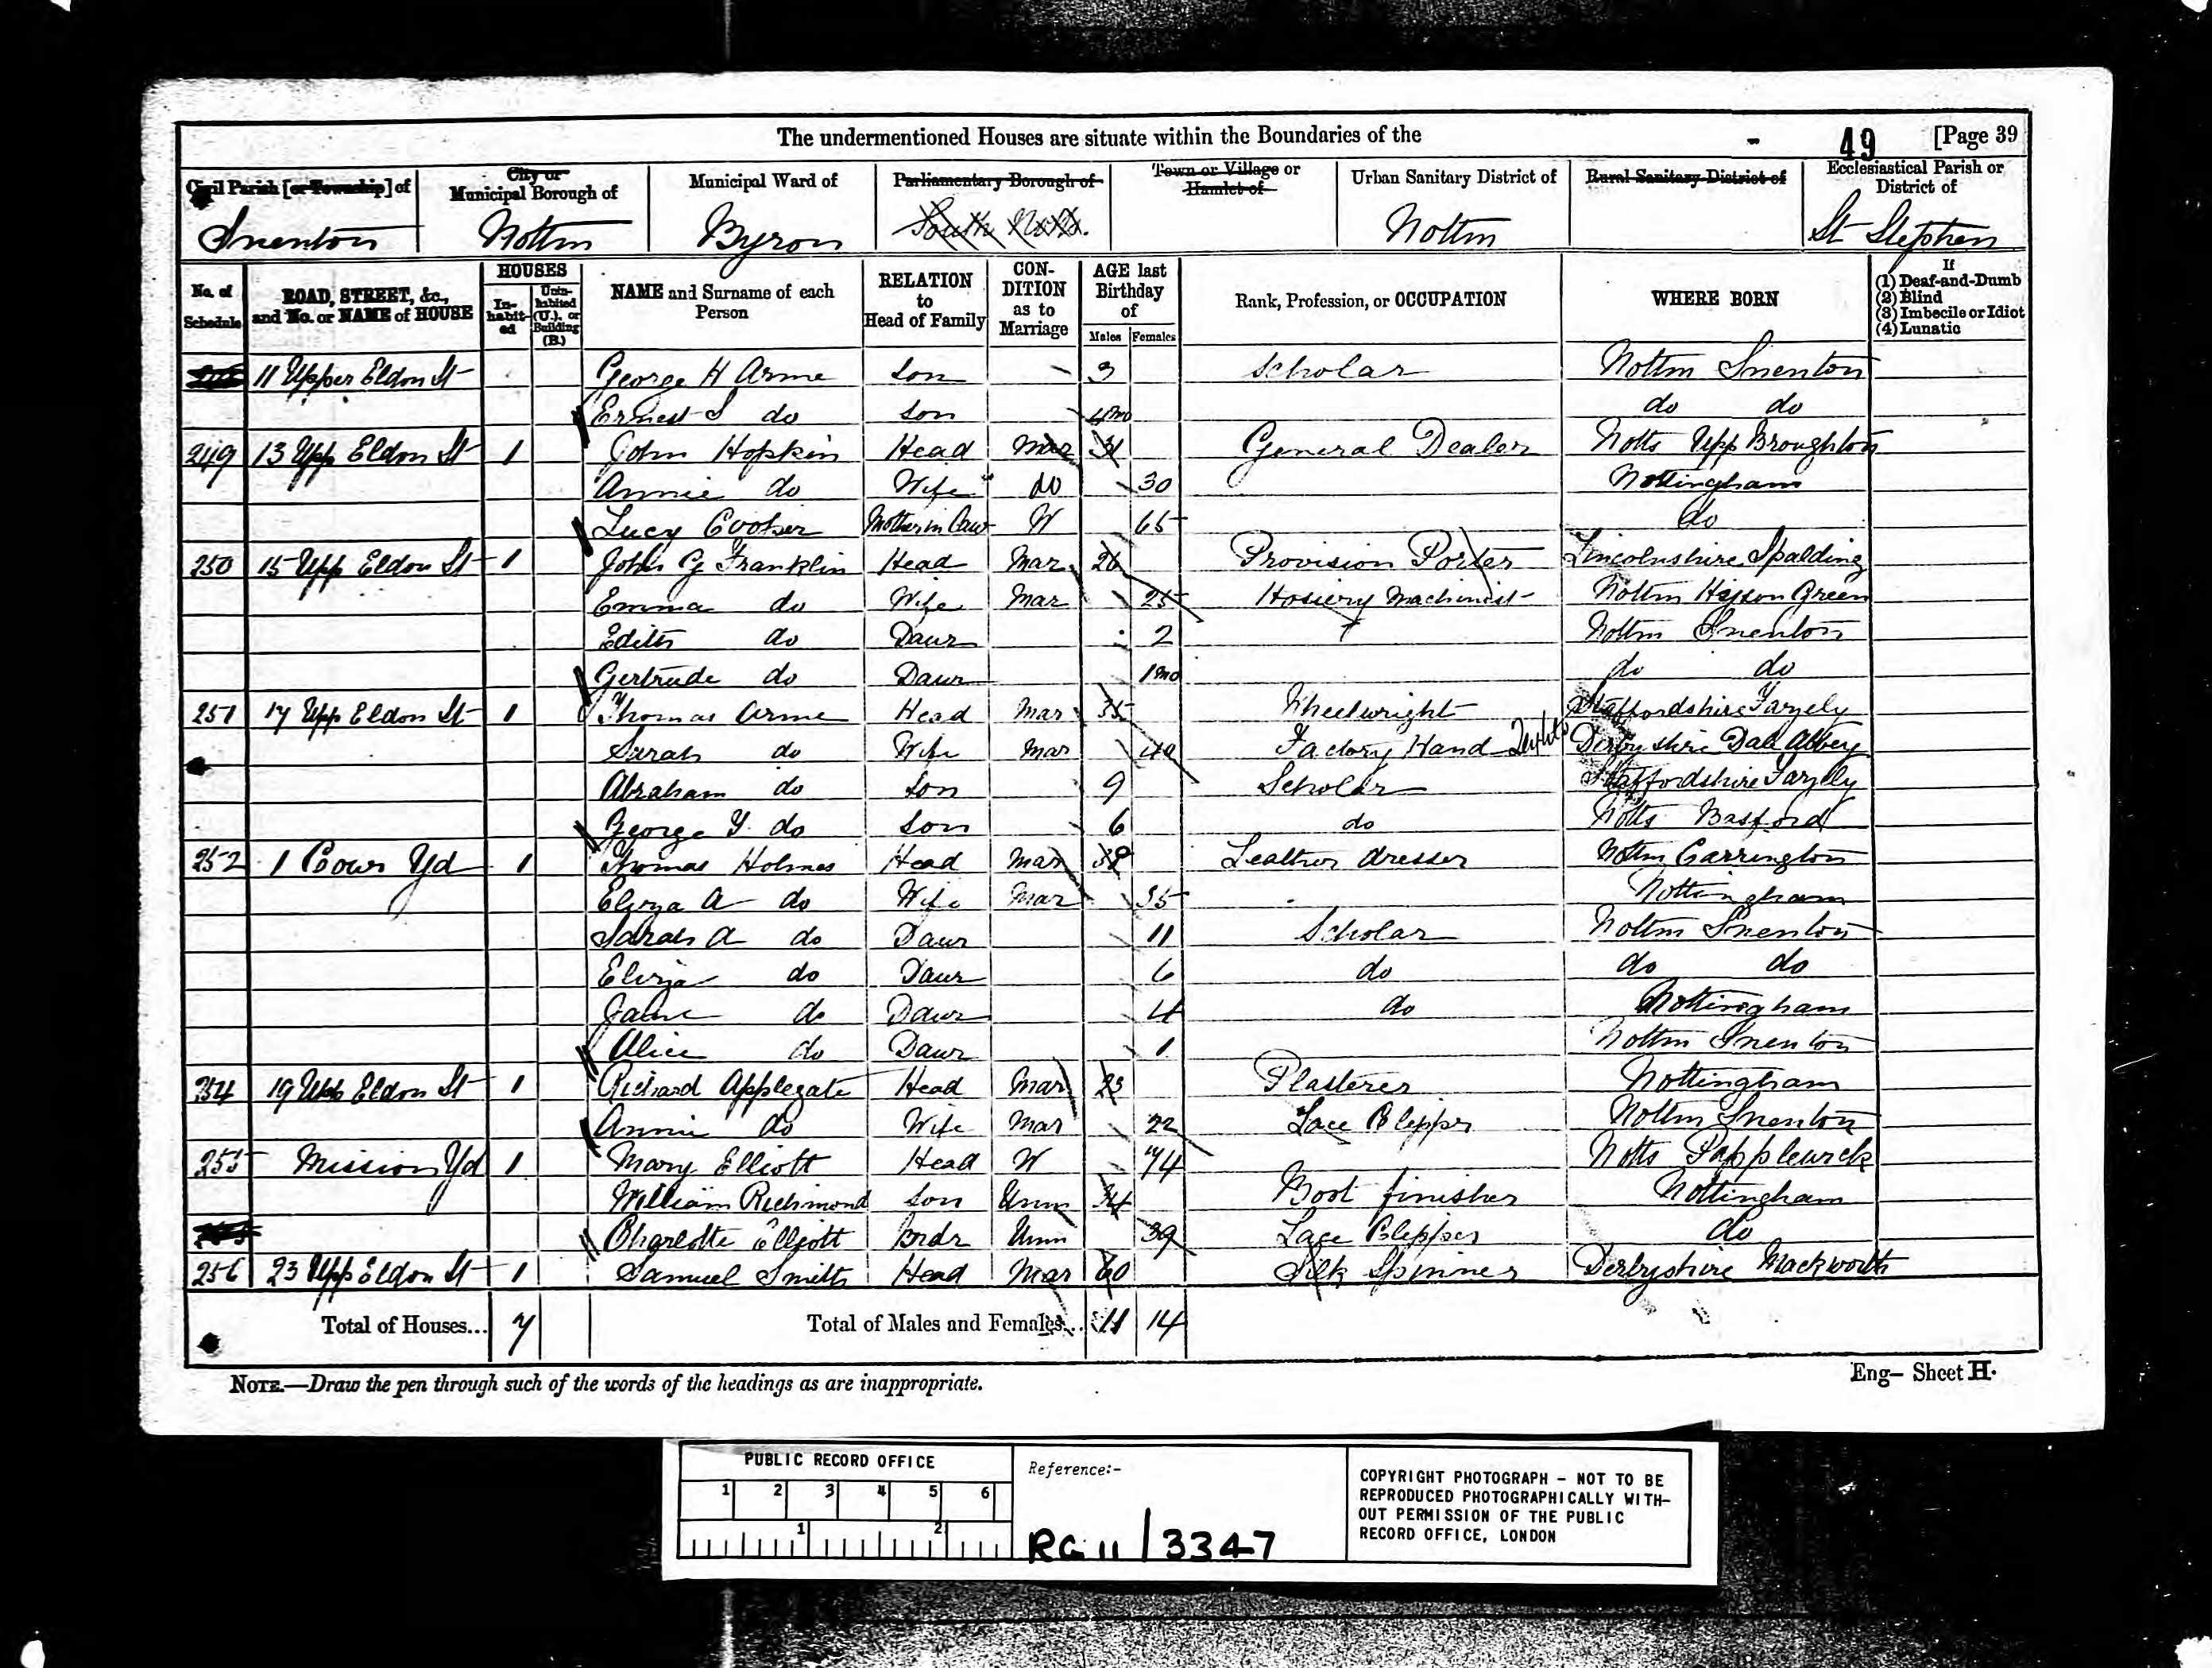 The undermentioned Houses are situate within the Boundaries of the
49 [Page 39
Civil Parish [or Township] of
City or Municipal Borough of
Municipal Ward of
Parliamentary Borough of
Town or Village or Hamlet of
Urban Sanitary District of
Rural Sanitary District of
Ecclesiastical Parish or District of
Snenton Nottm Byron South Notts. Nottm St Stephen
No. of Schedule
ROAD, STREET, &c., and No. or NAME of HOUSE
HOUSES
In-habit-ed
Unin-habited (U.), or Building (B.)
NAME and Surname of each Person
RELATION to Head of Family
CON-DITION as to Marriage
AGE last Birthday of
Males Females
Rank, Profession, or OCCUPATION
WHERE BORN
If
(1) Deaf-and-Dumb
(2) Blind
(3) Imbecile or Idiot
(4) Lunatic
11 Upper Eldon St George H Arme Son 3 Scholar Nottm Snenton
Ernest S do Son 4mo do do
249 13 Upp Eldon St 1 John Hopkin Head Mar 31 General Dealer Notts Upp Broughton
Annie do Wife do 30 Nottingham
Lucy Cooper Mother in Law W 65 do
250 15 Upp Eldon St 1 John G Franklin Head Mar 26 Provision Porter Lincolnshire Spalding
Emma do Wife Mar 25 Hosiery Machinist Nottm Hyson Green
Edith do Daur 2 Nottm Snenton
Gertrude do Daur 1mo do do
251 17 Upp Eldon St 1 Thomas Arme Head Mar 35 Wheelwright Staffordshire Fazely
Sarah do Wife Mar 40 Factory Hand Derbyshire Dale Abbey
Abraham do Son 9 Scholar Staffordshire Fazely
George Y. do Son 6 do Notts Basford
252 1 Yd 1 Thomas Holmes Head Mar 38 Leather dresser Nottm Carrington
Eliza A do Wife Mar 35 Nottingham
Sarah A do Daur 11 Scholar Nottm Snenton
Eliza do Daur 6 do do do
Jane do Daur 4 do Nottingham
Alice do Daur 1 Nottm Snenton
254 19 Upp Eldon St 1 Richard Applegate Head Mar 23 Plasterer Nottingham
Annie do Wife Mar 22 Lace Clipper Nottm Snenton
255 Mission Yd 1 Mary Elliott Head W 74 Notts Papplewick
William Richmond Son Unm 34 Boot finisher Nottingham
Charlotte Elliott Brdr Unm 39 Lace Clipper do
256 23 Upp Eldon St 1 Samuel Smith Head Mar 60 Silk Spinner Derbyshire Mackworth
Total of Houses... 7 Total of Males and Females... 11 14
NOTE.—Draw the pen through such of the words of the headings as are inappropriate.
Eng– Sheet H.
PUBLIC RECORD OFFICE
1 2 3 4 5 6
1 2
Reference:-
RG 11 / 3347
COPYRIGHT PHOTOGRAPH – NOT TO BE
REPRODUCED PHOTOGRAPHICALLY WITH-
OUT PERMISSION OF THE PUBLIC
RECORD OFFICE, LONDON